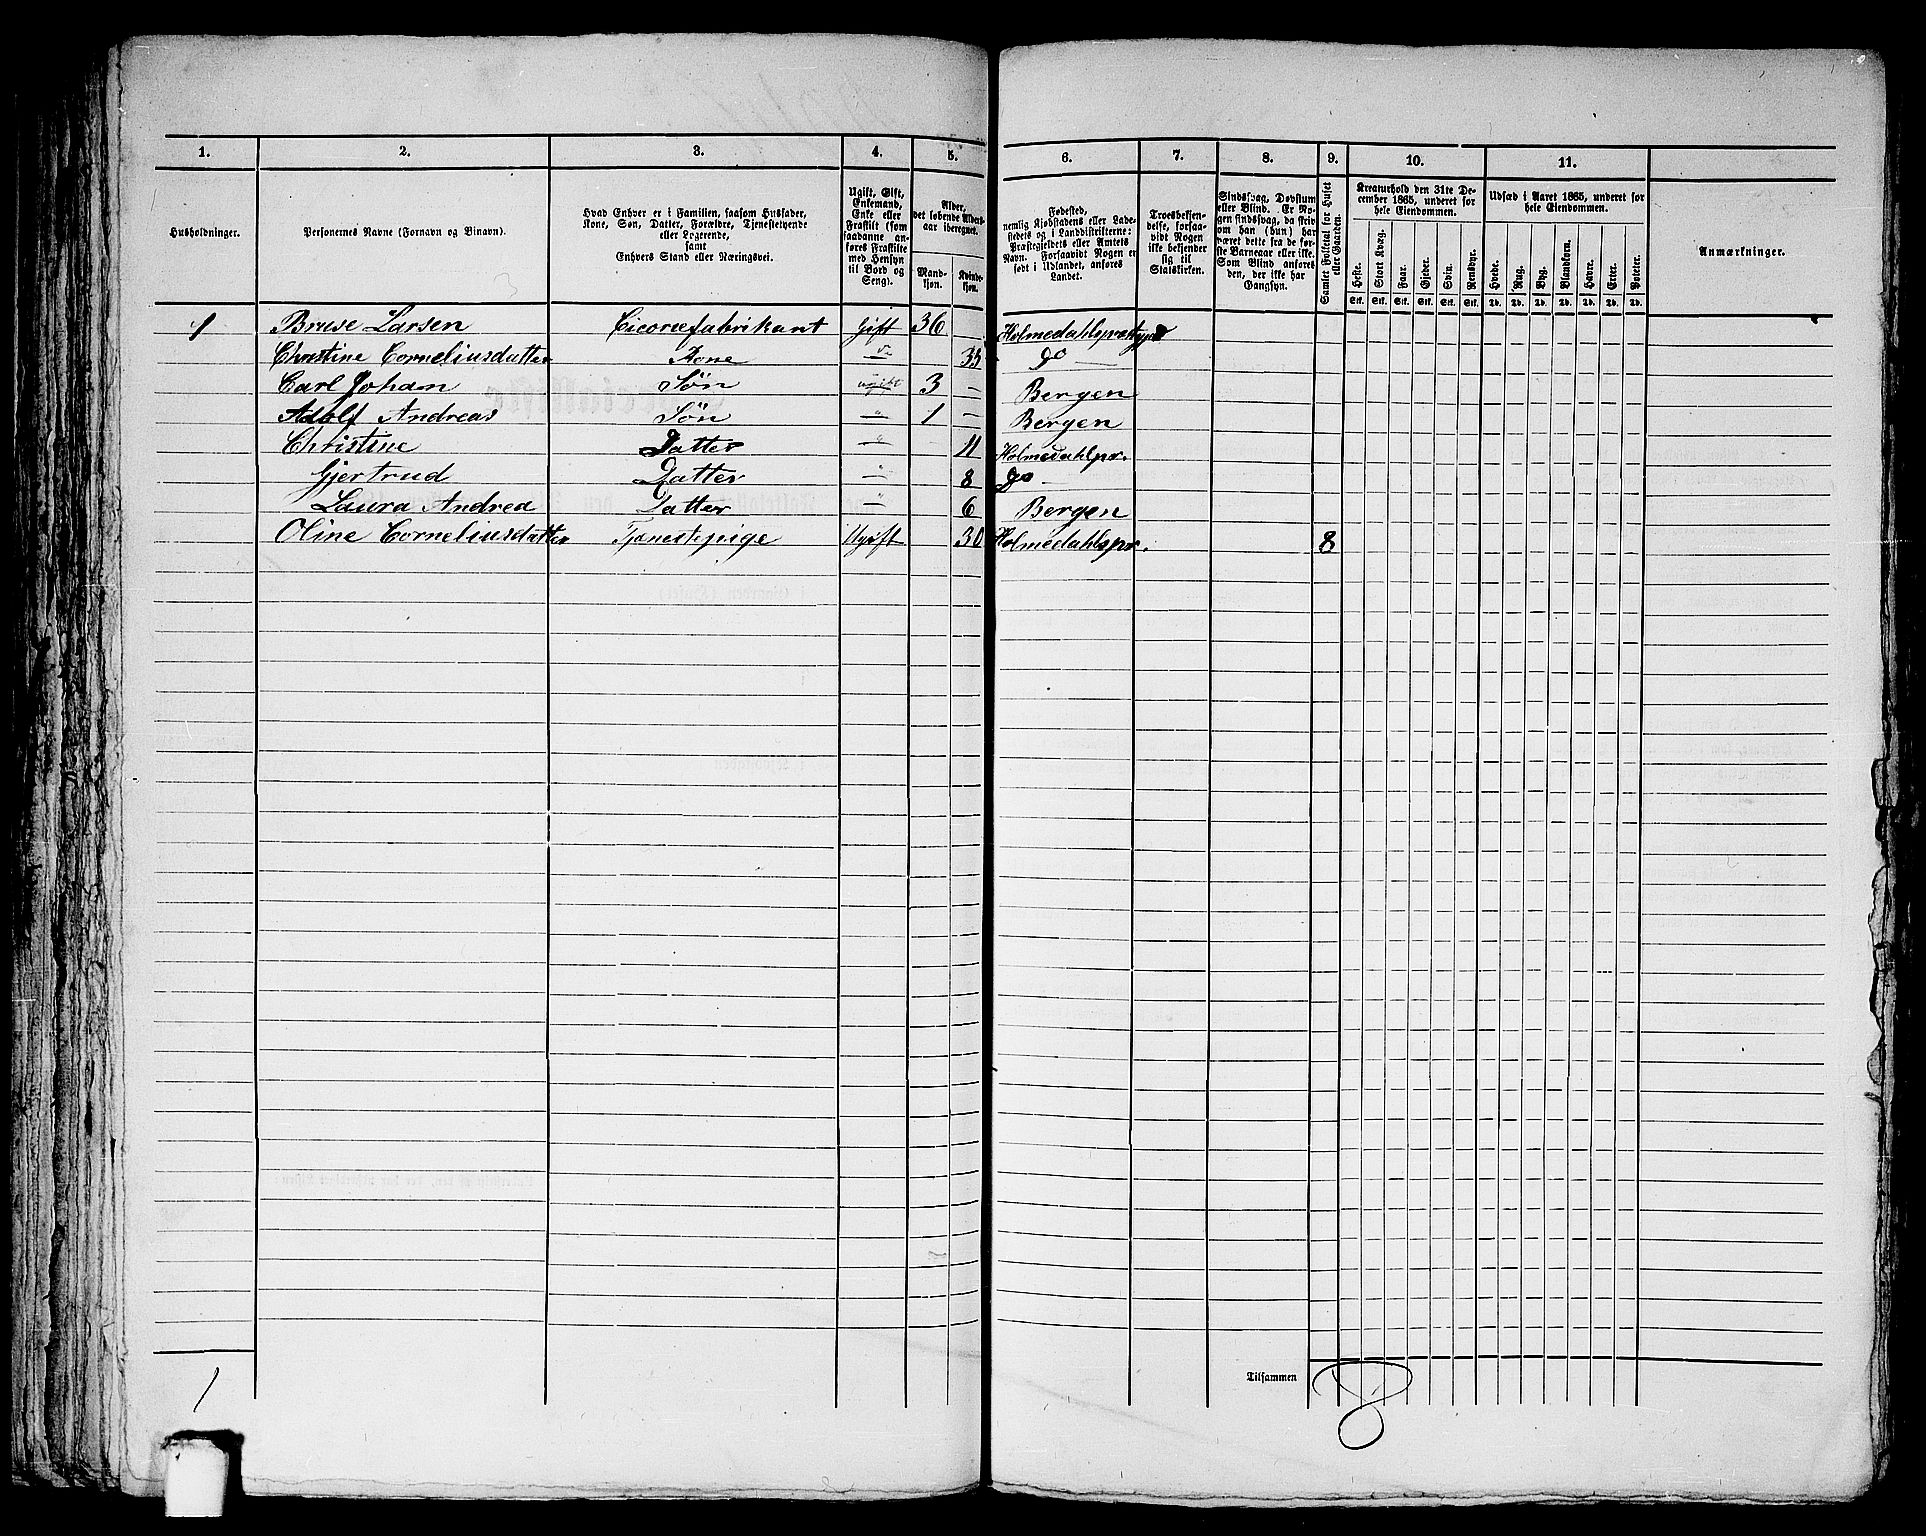 1. 2. 3. 4. 5. 6. 7. 8. 9. 10. 11.
Husholdninger.
Personernes Navne (Fornavn og Binavn).
Hvad Enhver er i Familien, saasom Husfader,
Kone, Søn, Datter, Forældre, Tjenestetyende
eller Logerende,
samt
Enhvers Stand eller Næringsvei.
Ugift, Gift,
Enkemand,
Enke eller
Fraskilt (som
saadanne an-
føres Fraskilte
med Hensyn
til Bord og
Seng).
Alder,
det løbende Alders-
aar iberegnet.
Mand-
kjøn.
Kvinde-
kjøn.
Fødested,
nemlig Kjøbstadens eller Lade-
stedets og i Landdistrikterne:
Præstegjeldets eller Amtets
Navn. Forsaavidt Nogen er
født i Udlandet, anføres
Landet.
Troesbekjen-
delse, forsaa-
vidt Nogen
ikke bekjender
sig til
Statskirken.
Sindssvag, Døvstum
eller Blind. Er No-
gen sindssvag, da skriv
om han (hun) har
været dette fra de før-
ste Barneaar eller ikke.
Som Blind anføres
den, der ikke har
Gangsyn.
Samlet Folketal for Huset
eller Gaarden.
Kreaturhold den 31te De-
cember 1865, underet for
hele Eiendommen.
Heste. Stort Kvæg. Faar. Gjeder. Svin. Rensdyr.
Stk. Stk. Stk. Stk. Stk. Stk.
Udsæd i Aaret 1865, underet for
hele Eiendommen.
Hvede. Rug. Byg. Blandkorn. Havre. Erter. Poteter.
Td. Td. Td. Td. Td. Td. Td.
Anmærkninger.
1 Bruse Larsen Cicoriefabrikant Gift 36 Holmedahlsprætgj
Christine Corneliusdatter Kone do 35 do —
Carl Johan Søn ugift 3 — Bergen
Adolf Andreas Søn " 1 — Bergen
Christine Datter " 11 Holmedahlpr.
Gjertrud Datter " 8 do —
Laura Andrea Datter " 6 Bergen
Oline Corneliusdatter Tjenestepige Ugift 30 Holmedahlspr. 8
Tilsammen 8
1